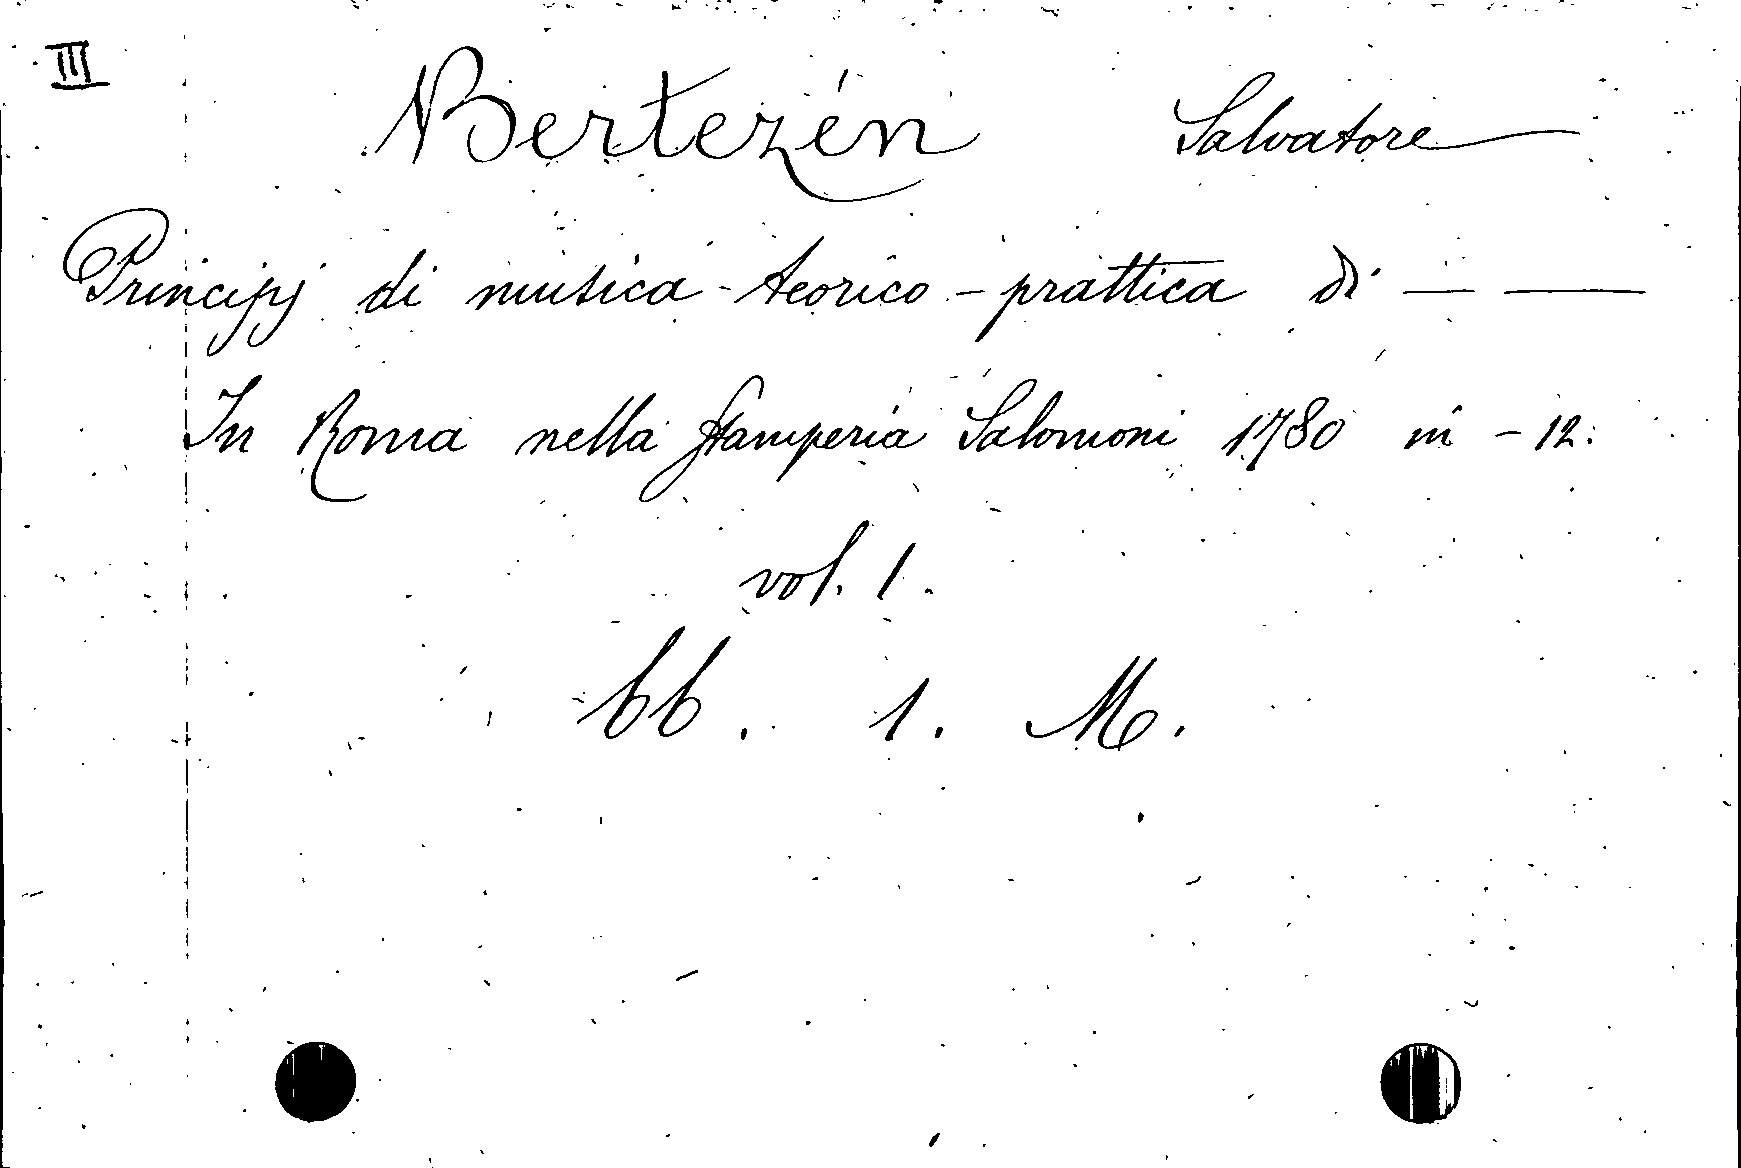 III
Bertezén Salvatore
Principj di musica-teorico-prattica di — —
In Roma nella Stamperia Salomoni 1780 in-12.
vol. 1.
bb. 1. M.